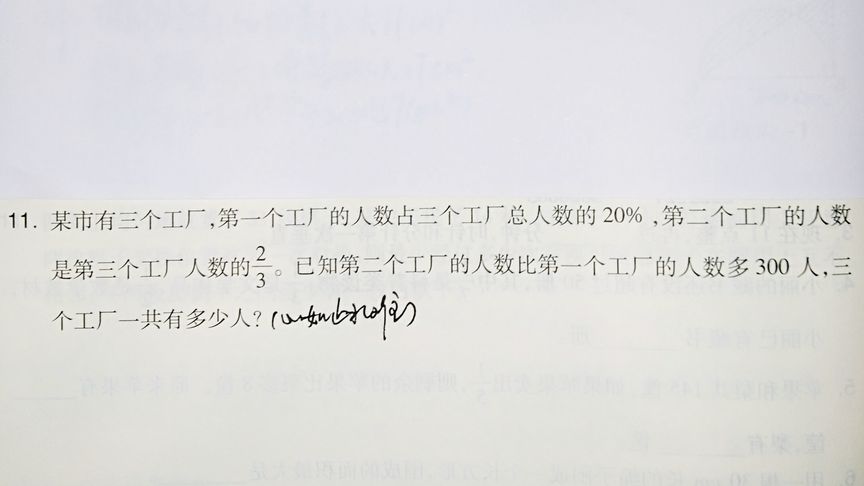 11. 某市有三个工厂,第一个工厂的人数占三个工厂总人数的 20% ,第二个工厂的人数
是第三个工厂人数的2/3。已知第二个工厂的人数比第一个工厂的人数多 300 人,三
个工厂一共有多少人?